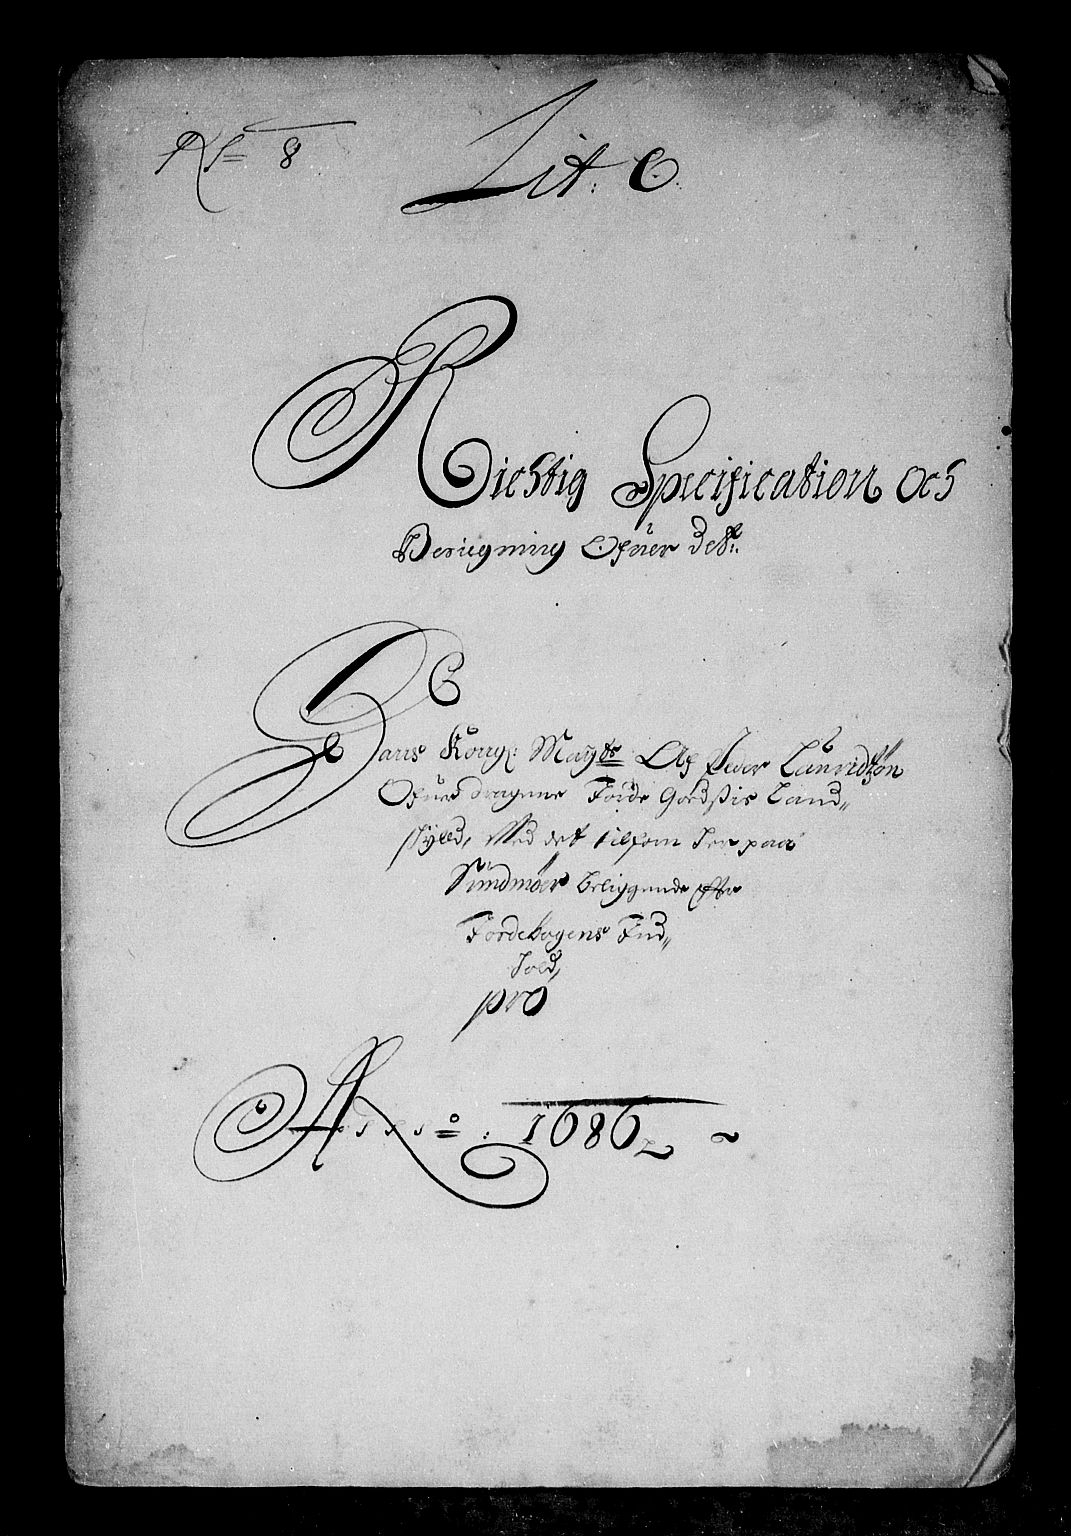 No 8
Lit: C.
Richtig Specification Och
Beregning Ofuer det:
Hans Kongl: Mayts Af Peder Lauridtzøn
Ofuer dragene Jorde Godsis Land„
skyld, Med det tilsom her paa
Sundmøer beliggende effter
Jordebogens Ind„
hold,
pro
Anno: 1686